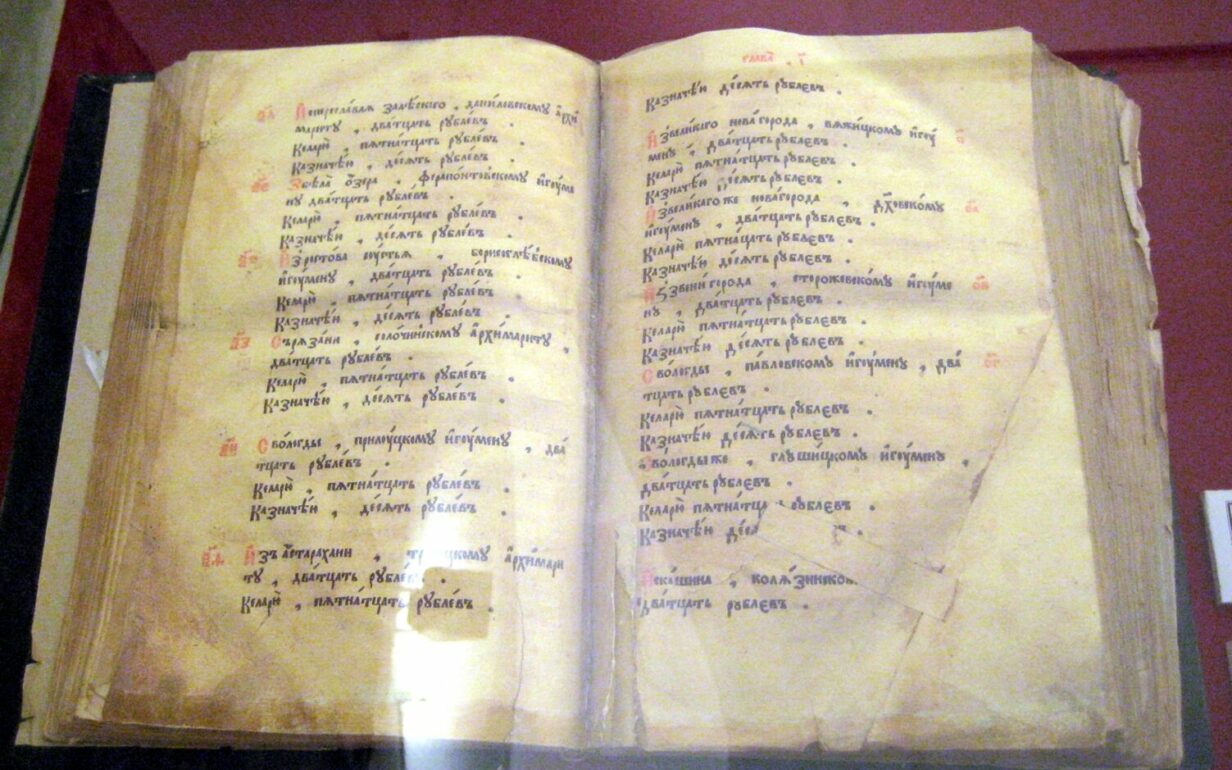 Ис переславля залѣского , даниловскому архи
мариту , двадцать рублевъ .
Келарю , пятнатцать рублевъ .
Казначѣю , десять рублевъ .
Збѣла озера , ферапонтовскому игуме
ну двадцать рублевъ .
Келарю , пятнатцать рублевъ .
Казначѣю , десять рублевъ .
Изростова сустья , борисоглѣбскому
игумену , дватцать рублевъ .
Келарю , пятнатцать рублевъ .
Казначѣю , десять рублевъ .
Сърязани , солочинскому архимариту ,
дватцать рублевъ .
Келарю , пятнатцать рублевъ .
Казначѣю , десять рублевъ .
Свологды , прилуцкому игумену , два
тцать рублевъ .
Келарю , пятнатцать рублевъ .
Казначѣю , десять рублевъ .
Изъ астарахани , троицкому архимари
ту , дватцать рублевъ .
Келарю , пятнатцать рублевъ .
глава , 7
Казначѣю десять рублевъ .
Извеликаго новагорода , вяжицкому игу
мену , дватцать рублевъ .
Келарю пятнатцать рублевъ .
Казначѣю десять рублевъ .
Извеликагоже новагорода , духовскому
игумену , дватцать рублевъ .
Келарю пятнатцать рублевъ .
Казначѣю десять рублевъ .
Иззвенигорода , сторожевскому игуме
ну , дватцать рублевъ .
Келарю пятнатцать рублевъ .
Казначѣю десять рублевъ .
Свологды , павловскому игумену , два
тцать рублевъ .
Келарю пятнатцать рублевъ .
Казначѣю десять рублевъ .
Свологдыже , глушицкому игумену ,
дватцать рублевъ .
Келарю пятнатц рублевъ .
Казначѣю деся
Искашина , колязинском
дватцать рублевъ .